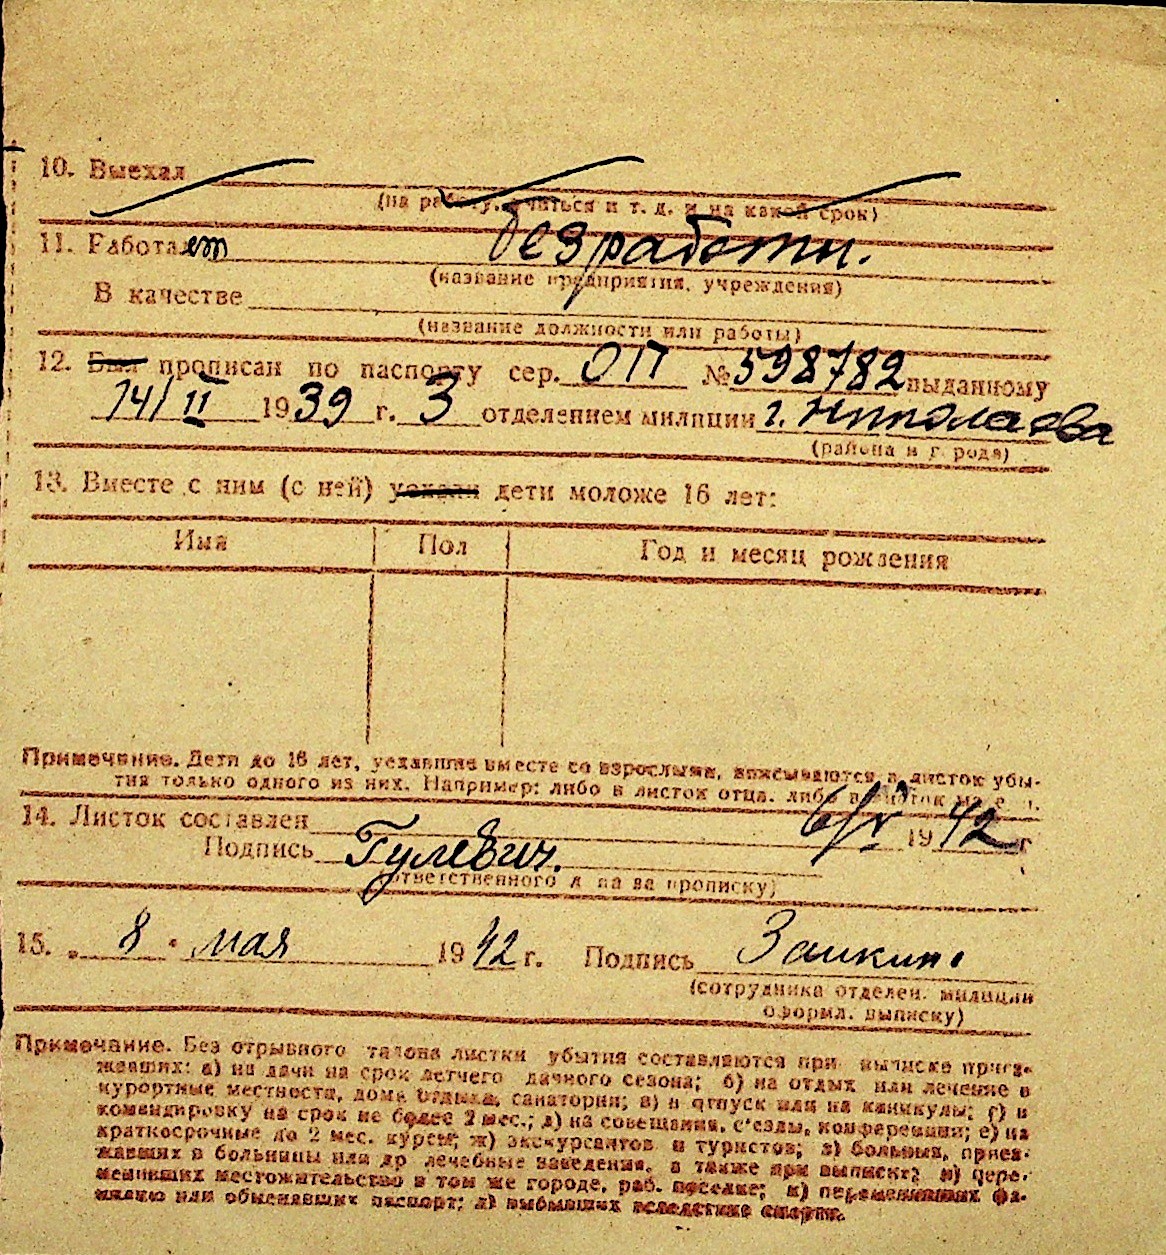 10. Выехал
(на работу, учиться и т. д. и на какой срок)
11. Работает безработн.
(название предприятия, учреждения)
В качестве
(название должности или работы)
12. Был прописан по паспорту сер. ОП № 598782 выданному
14/II 1939 г. 3 отделением милиции г. Николаева
(района и города)
13. Вместе с ним (с ней) уехали дети моложе 16 лет:
Имя Пол Год и месяц рождения
Примечание. Дети до 16 лет, уехавшие вместе со взрослыми, вписываются в листок убы-
тия только одного из них. Например: либо в листок отца, либо в листок
14. Листок составлен 6/V 1942 г
Подпись Гулевич.
(ответственного за прописку)
15. „ 8 " мая 1942 г. Подпись Заикин
(сотрудника отделен. милиции
оформл. выписку)
Примечание. Без отрывного талона листки убытия составляются при выписке приез-
жавших: а) на дачи на срок летнего дачного сезона; б) на отдых или лечение в
курортные местности, дома отдыха, санатории; в) в отпуск или на каникулы; г) в
командировку на срок не более 2 мес.; д) на совещания, с'езды, конференции; е) на
краткосрочные до 2 мес. курсы; ж) экскурсантов и туристов; з) больных, приез-
жавших в больницы или др лечебные заведения, а также при выписке; и) пере-
менивших местожительство в том же городе, раб. поселке; к) переменивших фа-
милию или обменявших паспорт; л) выбывших вследствие смерти.